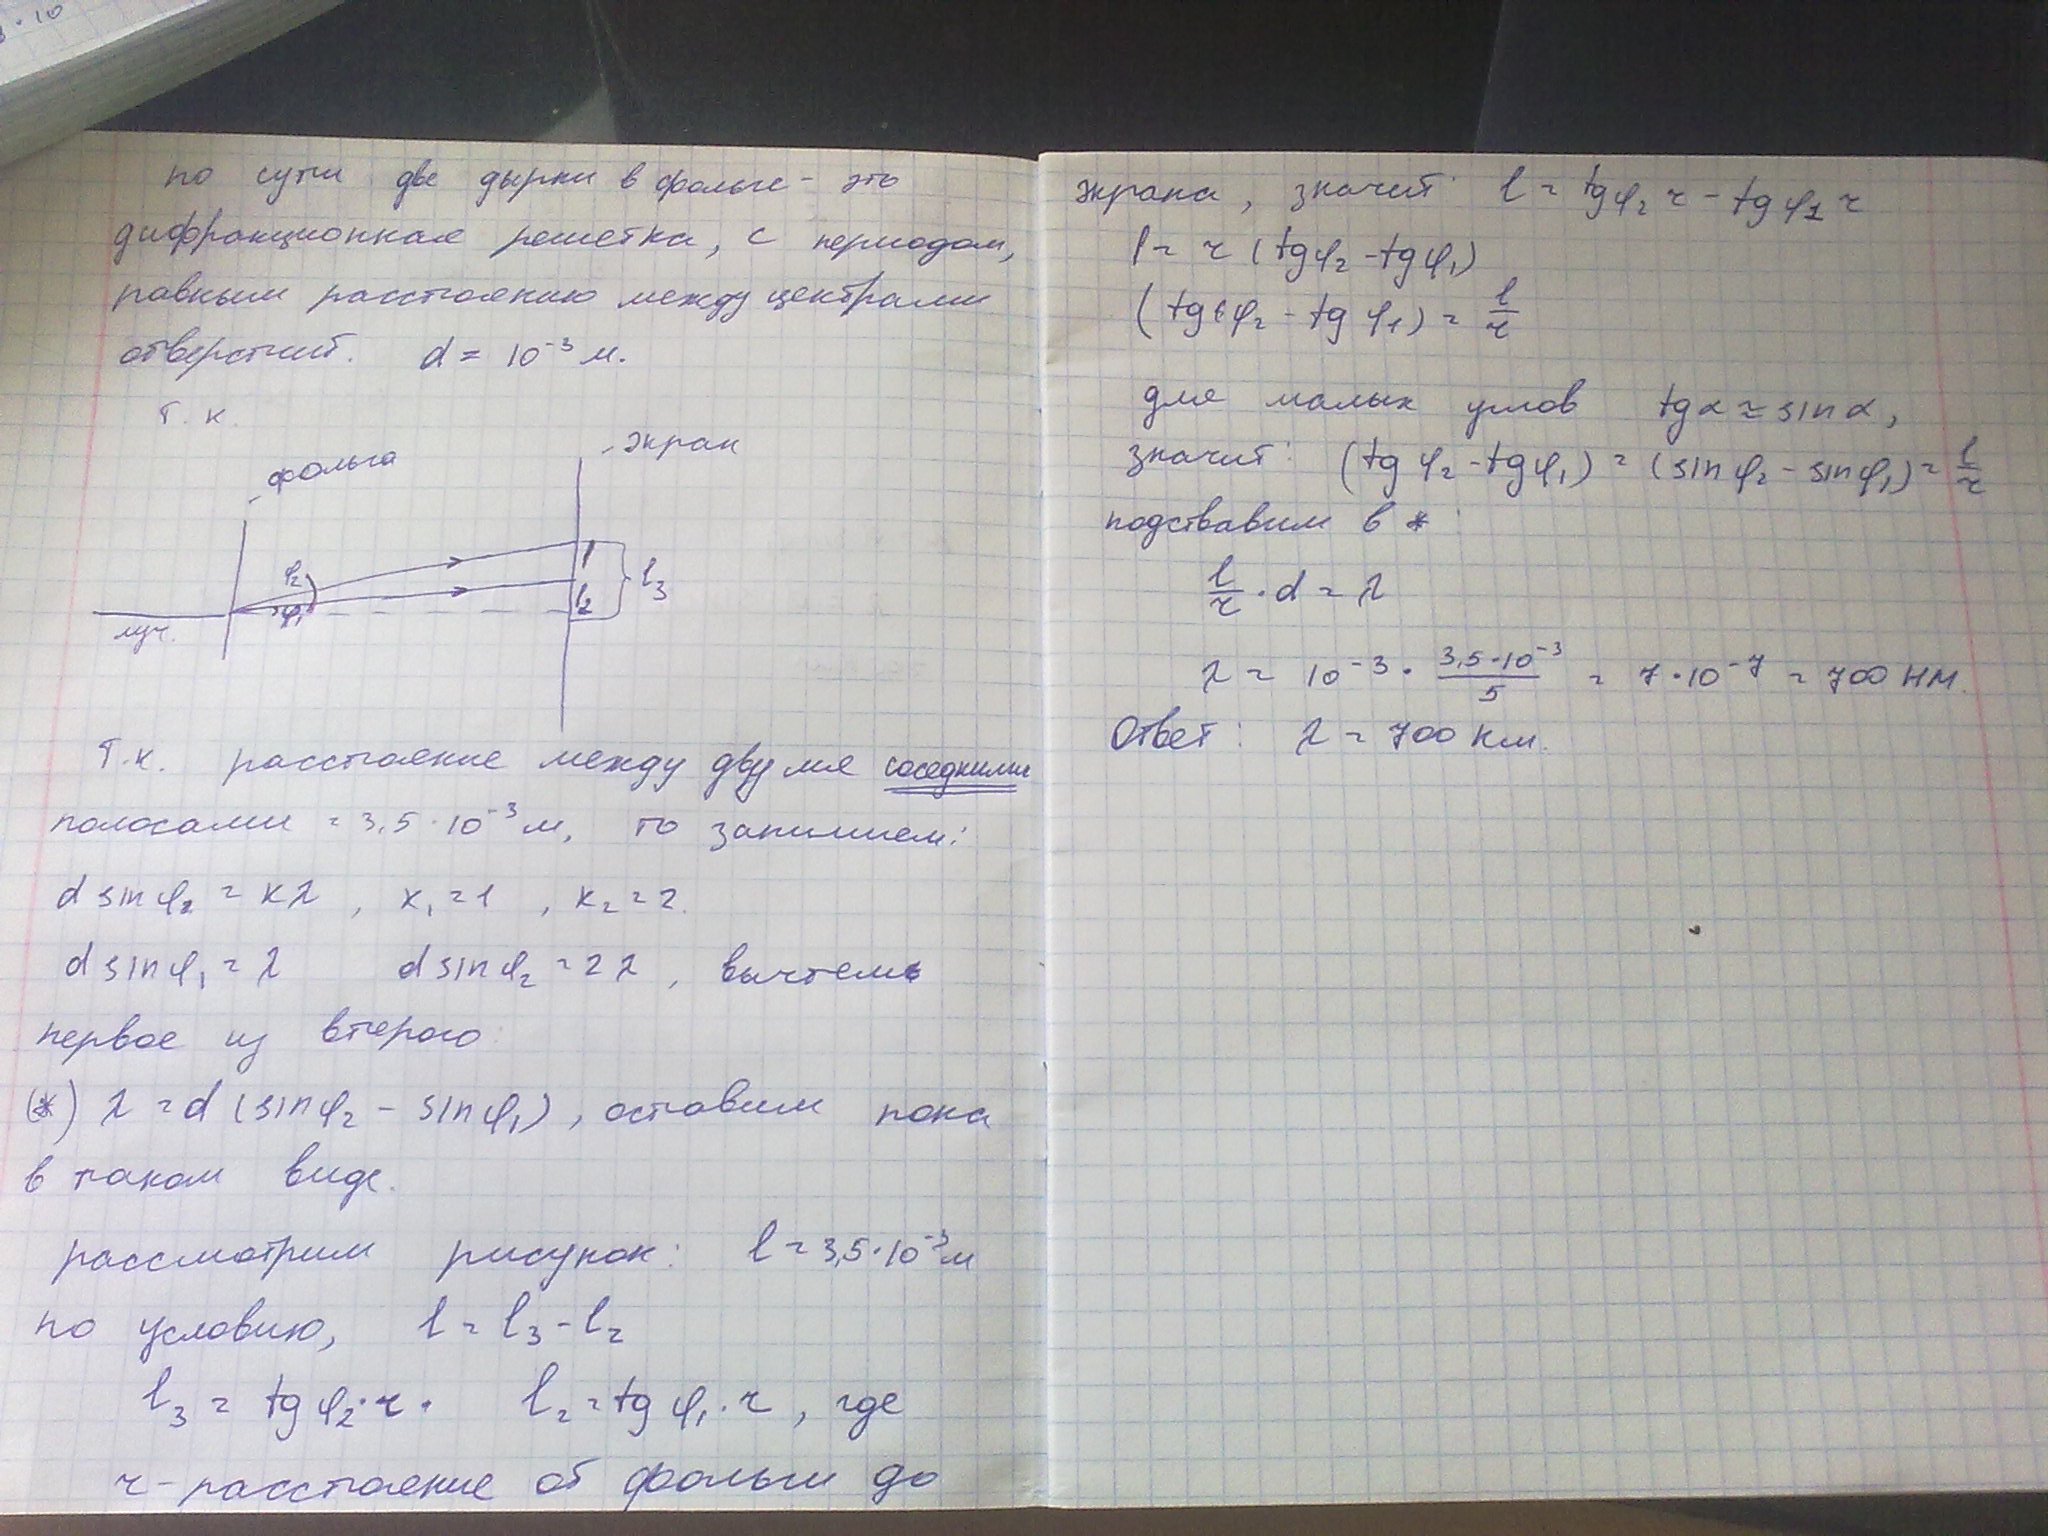 · 10
по сути две дырки в фольге - это
дифракционная решетка, с периодом,
равным расстоянию между центрами
отверстий. d = 10⁻³ м.
Т.к.
фольга
экран
φ₂
φ₁
луч.
l
l₂
l₃
Т.к. расстояние между двумя соседними
полосами = 3,5·10⁻³ м, то запишем:
d sin φ₂ = kλ, k₁ = 1, k₂ = 2.
d sin φ₁ = λ d sin φ₂ = 2λ, вычтем
первое из второго:
(*) λ = d (sin φ₂ - sin φ₁), оставим пока
в таком виде.
рассмотрим рисунок: l = 3,5·10⁻³ м
по условию, l = l₃ - l₂
l₃ = tg φ₂ · r. l₂ = tg φ₁ · r, где
r - расстояние от фольги до
экрана, значит: l = tg φ₂ r - tg φ₁ r
l = r (tg φ₂ - tg φ₁)
(tg φ₂ - tg φ₁) = l/r
для малых углов tg α ≈ sin α,
значит: (tg φ₂ - tg φ₁) = (sin φ₂ - sin φ₁) = l/r
подставим в *:
l/r · d = λ
λ = 10⁻³ · 3,5·10⁻³/5 = 7·10⁻⁷ = 700 нм.
Ответ: λ = 700 нм.